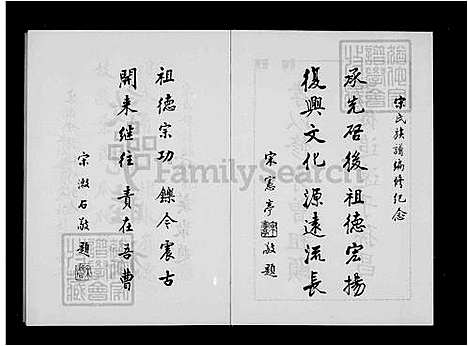 宋氏族譜編修紀念
承先啓後祖德宏揚
復興文化源遠流長
宋憲亭敬題
祖德宗功鑠今震古
開來继往責在吾曹
宗澂石敬題
FamilySearch